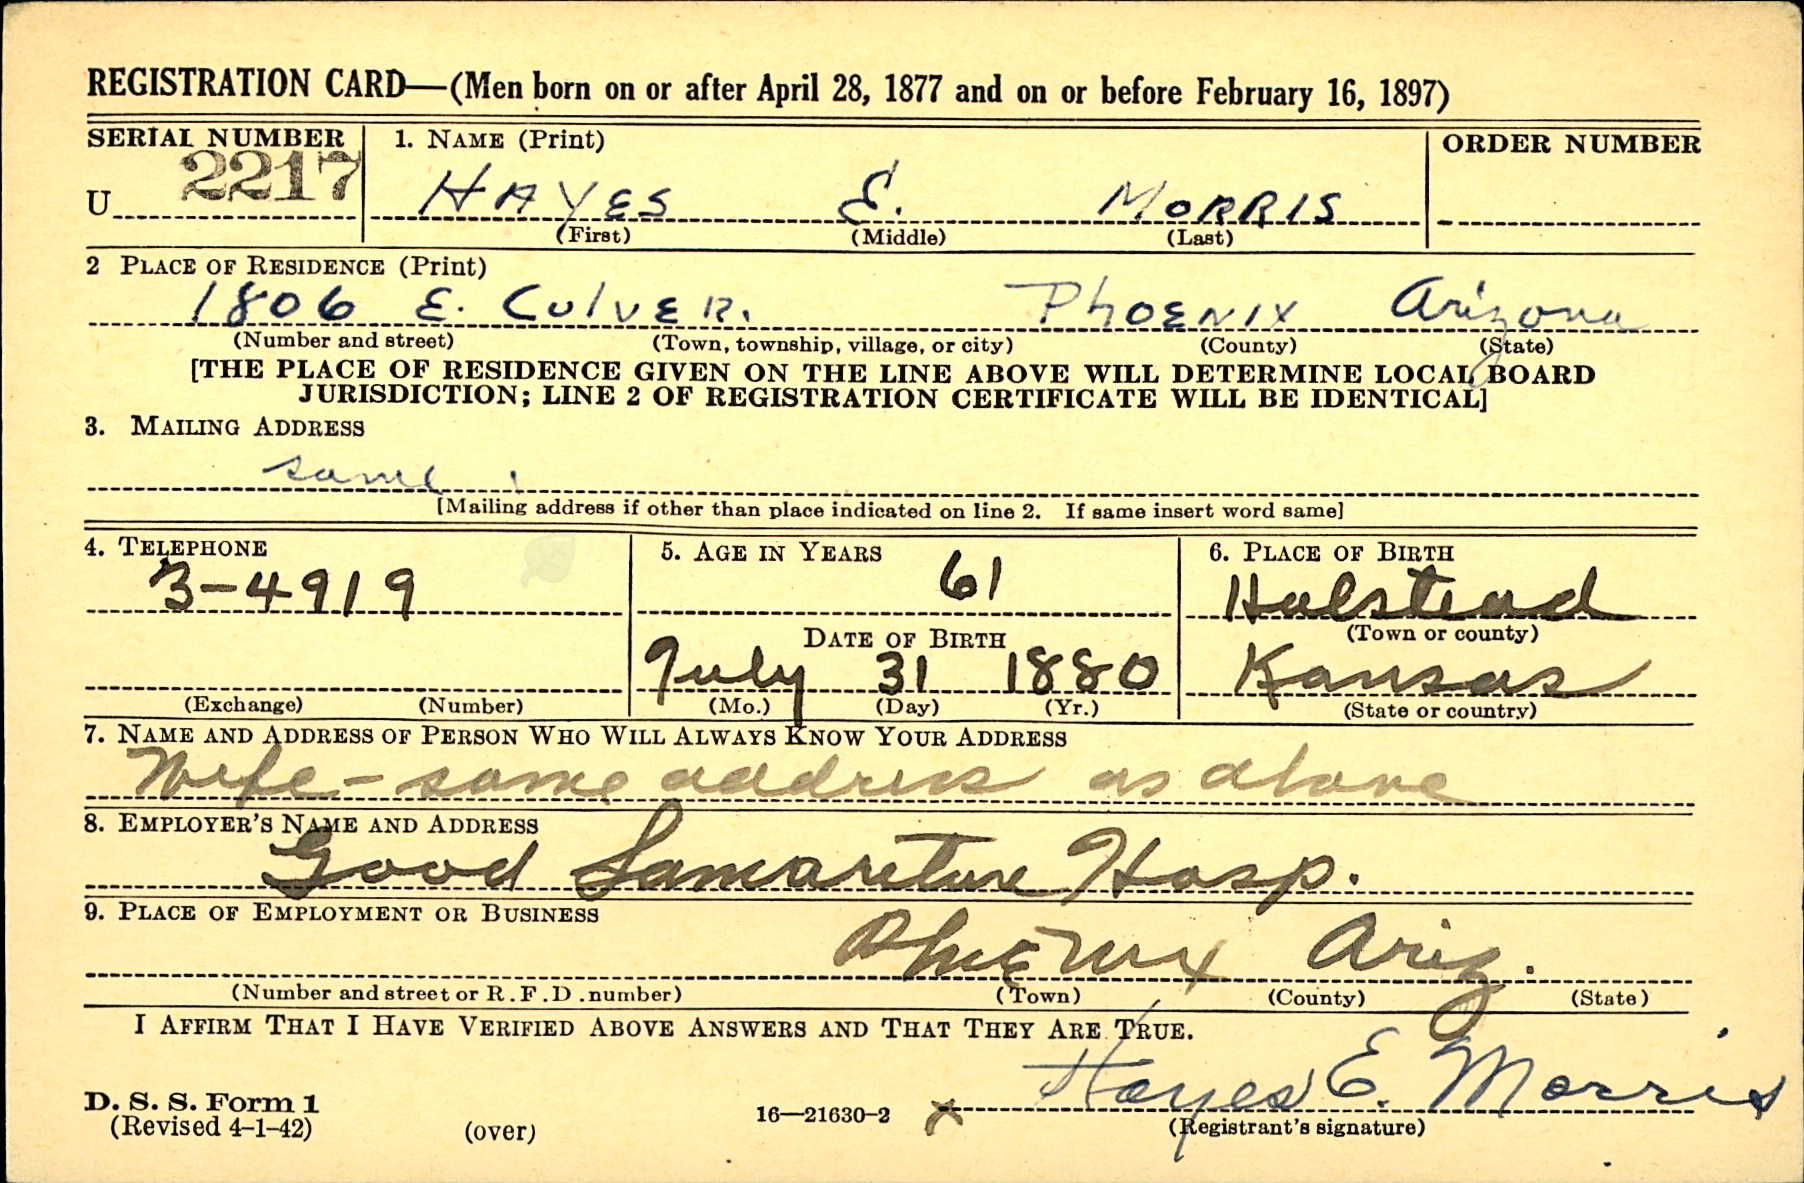 REGISTRATION CARD—(Men born on or after April 28, 1877 and on or before February 16, 1897)
SERIAL NUMBER 1. NAME (Print) ORDER NUMBER
U 2217 HAYES E. MORRIS
(First) (Middle) (Last)
2 PLACE OF RESIDENCE (Print)
1806 E. CulVER. PhOENIX Arizona
(Number and street) (Town, township, village, or city) (County) (State)
[THE PLACE OF RESIDENCE GIVEN ON THE LINE ABOVE WILL DETERMINE LOCAL BOARD
JURISDICTION; LINE 2 OF REGISTRATION CERTIFICATE WILL BE IDENTICAL]
3. MAILING ADDRESS
same
[Mailing address if other than place indicated on line 2. If same insert word same]
4. TELEPHONE 5. AGE IN YEARS 6. PLACE OF BIRTH
3-4919 61 Halstead
DATE OF BIRTH (Town or county)
July 31 1880 Kansas
(Exchange) (Number) (Mo.) (Day) (Yr.) (State or country)
7. NAME AND ADDRESS OF PERSON WHO WILL ALWAYS KNOW YOUR ADDRESS
Wife - same address as above
8. EMPLOYER'S NAME AND ADDRESS
Good Samaritan Hosp.
9. PLACE OF EMPLOYMENT OR BUSINESS
Phoenix Ariz.
(Number and street or R.F.D. number) (Town) (County) (State)
I AFFIRM THAT I HAVE VERIFIED ABOVE ANSWERS AND THAT THEY ARE TRUE.
Hayes E. Morris
D. S. S. Form 1
(Revised 4-1-42) (over) 16—21630-2 x (Registrant's signature)